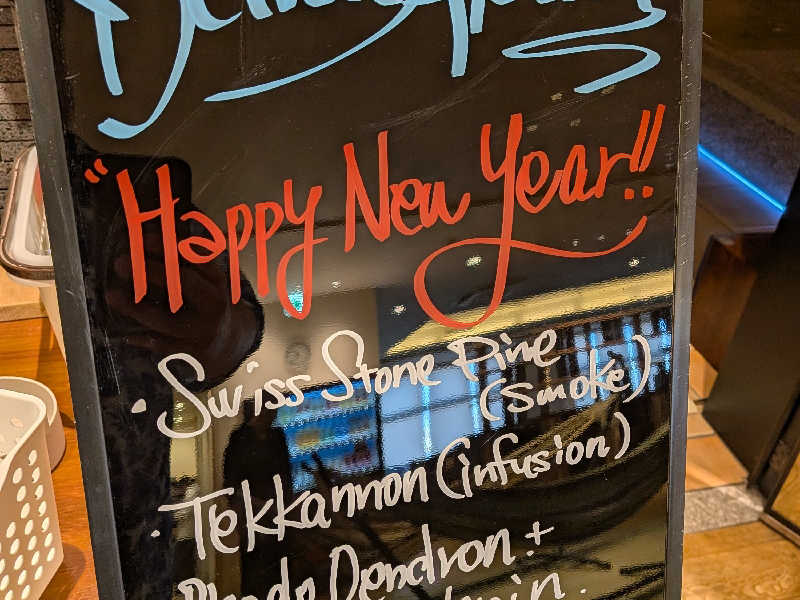 "Happy New Year!!
· Swiss Stone Pine
(smoke)
· Tekkannon (infusion)
Dendron +